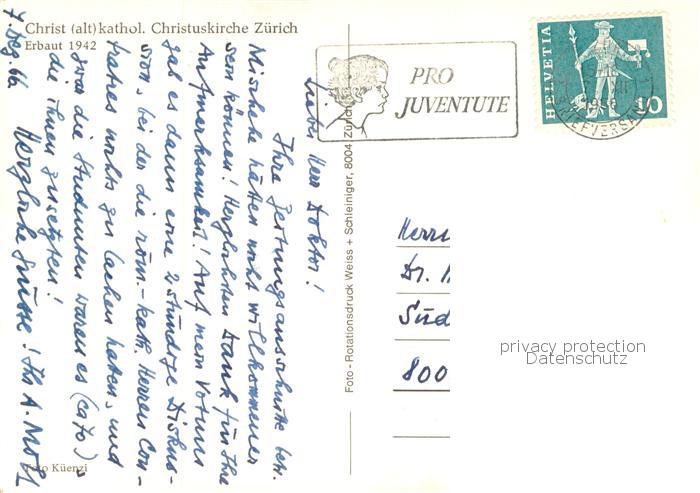 Christ (alt) kathol. Christuskirche Zürich
Erbaut 1942
7. Dez. 66
Lieber Herr Doktor!
Ihre Zeitungsausschnitte betr.
Mischehe hätten nicht willkommener
sein können! Herzlichsten Dank für Ihre
Aufmerksamkeit! Auf mein Votum
gab es dann eine 2 stündige Diskus-
sion, bei der die röm.-kath. Herren
nichts zu lachen hatten, und
zwar die Studenten waren es (ca 70),
die ihnen zusetzten!
Herzliche Grüsse! Ihr A.
Foto Küenzi
Foto - Rotationsdruck Weiss + Schleiniger, 8004 Zürich
PRO
JUVENTUTE
HELVETIA
10
BRIEFVERSAND
Herrn
Dr.
Süd
800
privacy protection
Datenschutz